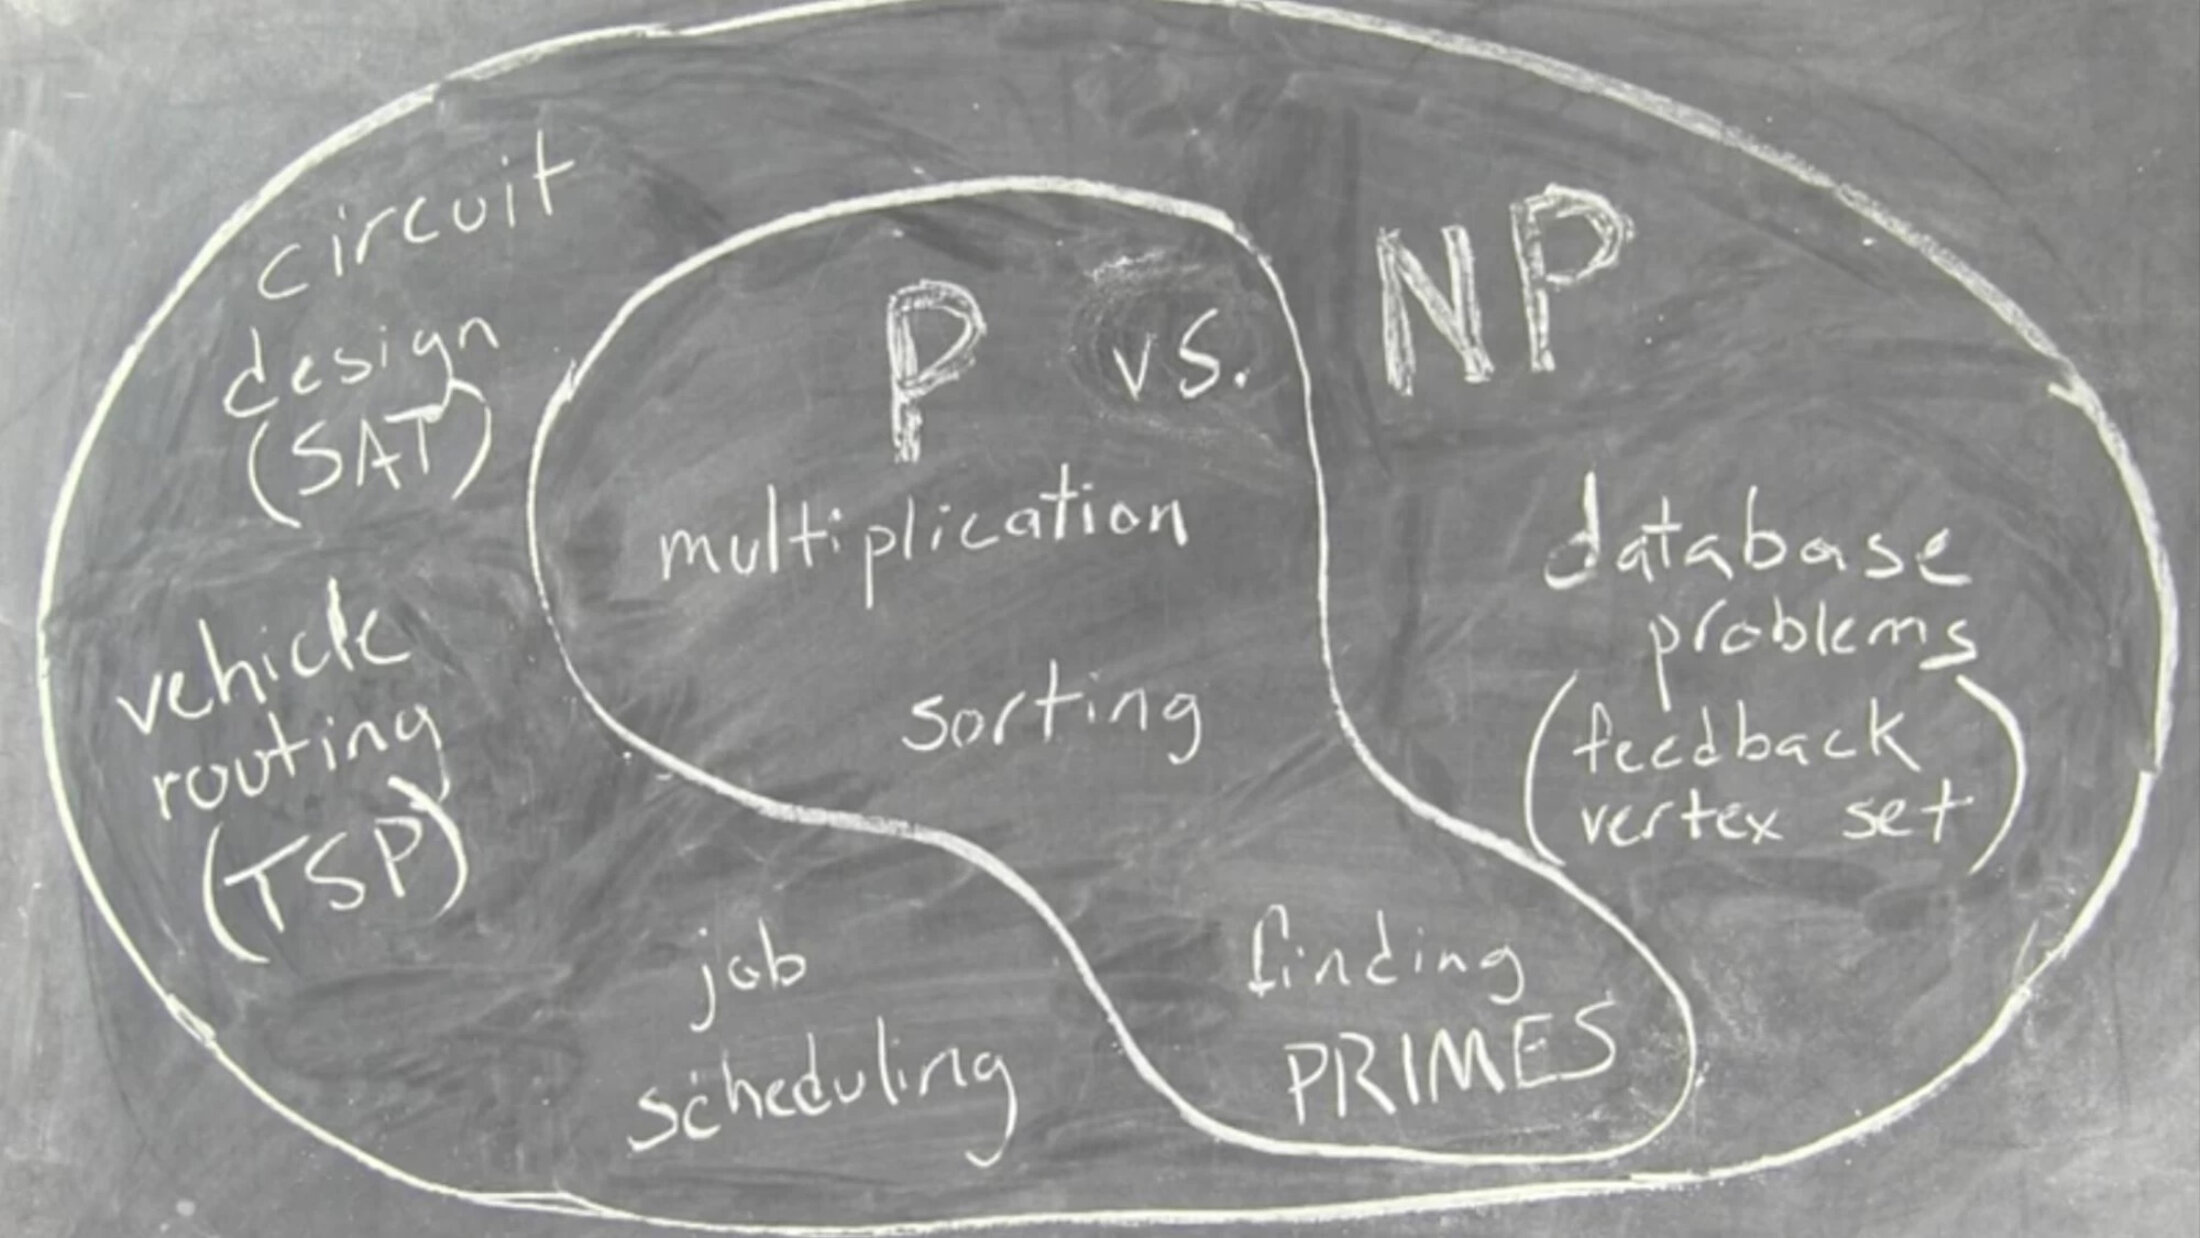 P vs. NP
circuit
design
(SAT)
multiplication
sorting
vehicle
routing
(TSP)
database
problems
(feedback
vertex set)
job
scheduling
finding
PRIMES